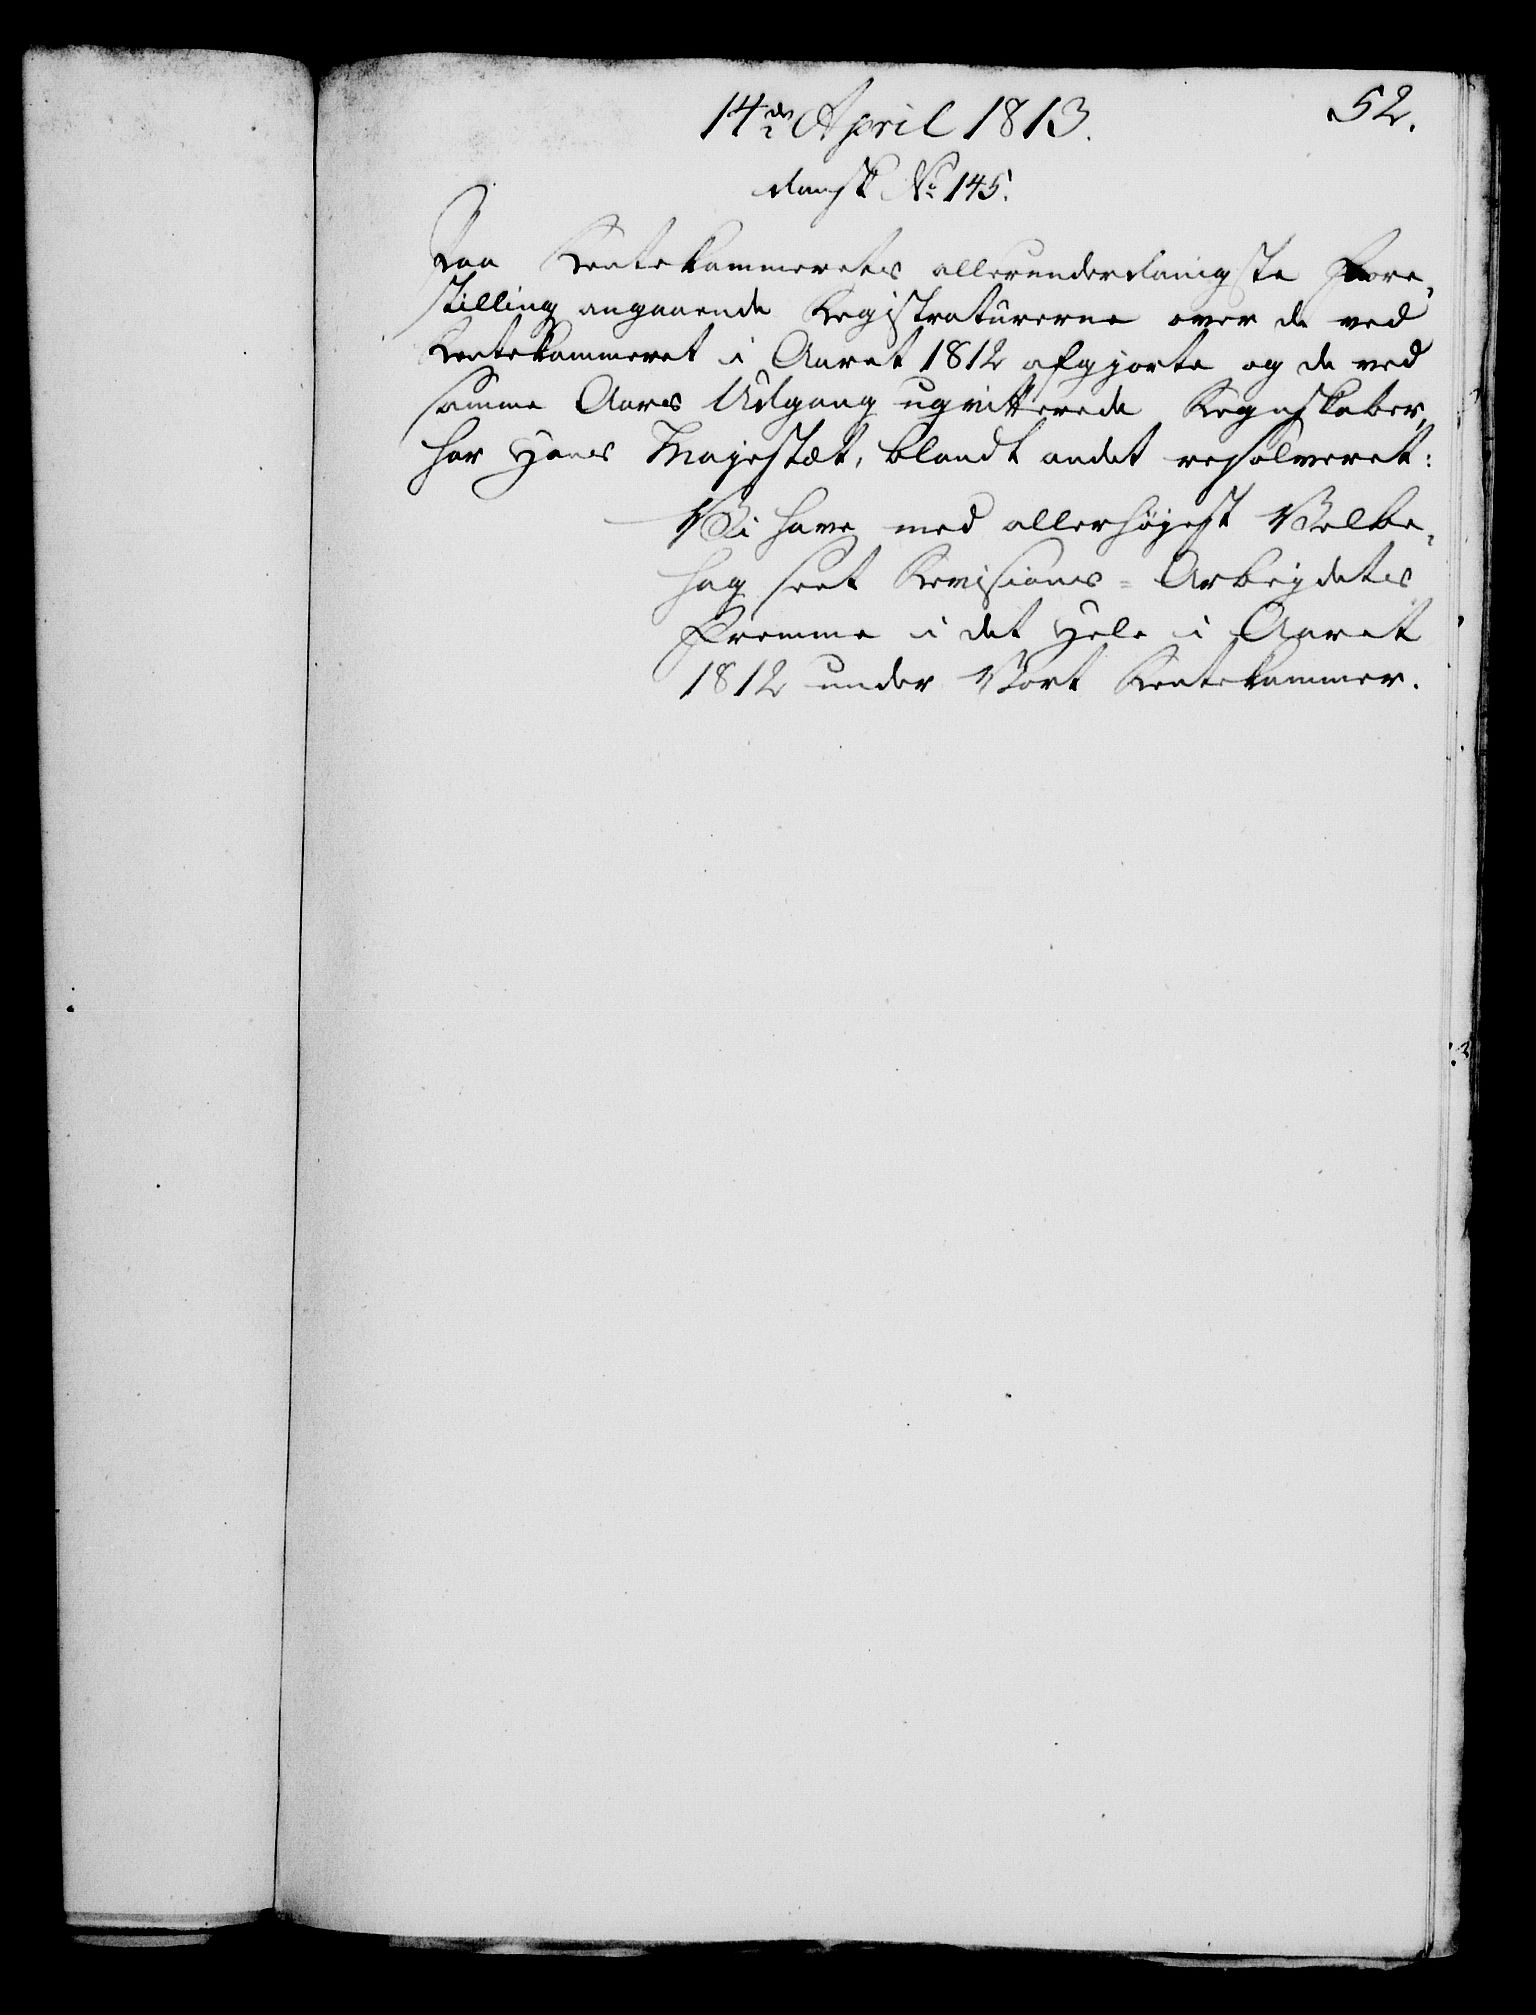 52.
14de April 1813.
dansk No 145.
Paa Rentekammerets allerunderdanigste Fore-
stilling angaaende Registraturerne over de ved
Rentekammeret i Aaret 1812 afgjorte og de ved
samme Aars Udgang uqvitterede Regnskaber,
har Hans Majestæt, blandt andet resolveret:
Vi have med allerhøjest Velbe-
hag seet Revisions-Arbejdets
Fremme i det Hele i Aaret
1812 under Vort Rentekammer.